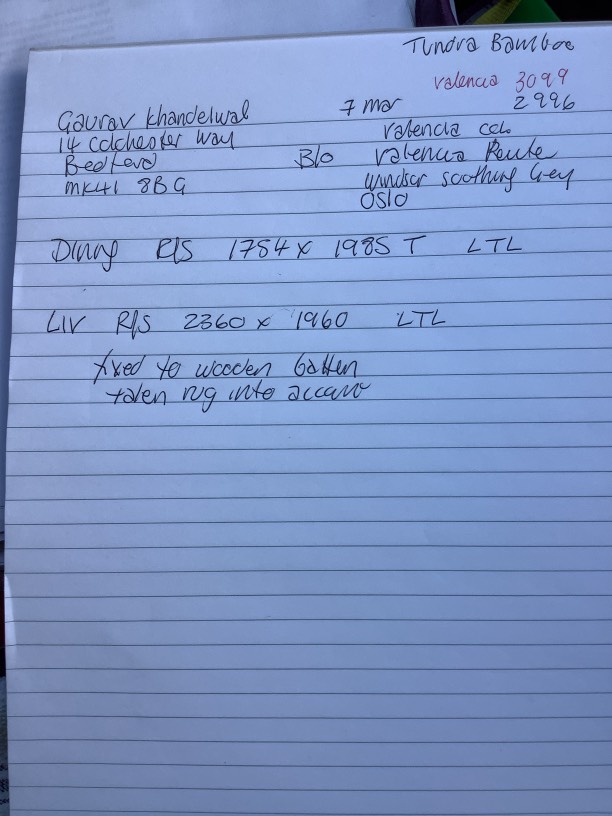 Tundra Bamboo
Valencia 3099
2996
Gaurav Khandelwal
14 Colchester Way
Bedford
MK41 8BG
7 Mar
Valencia
B/o Valencia Route
Windsor Soothing Grey
OSlO
Dinny R/S 1754 x 1985 T LTL
LIV R/S 2360 x 1960 LTL
fixed to wooden batten
taken rug into